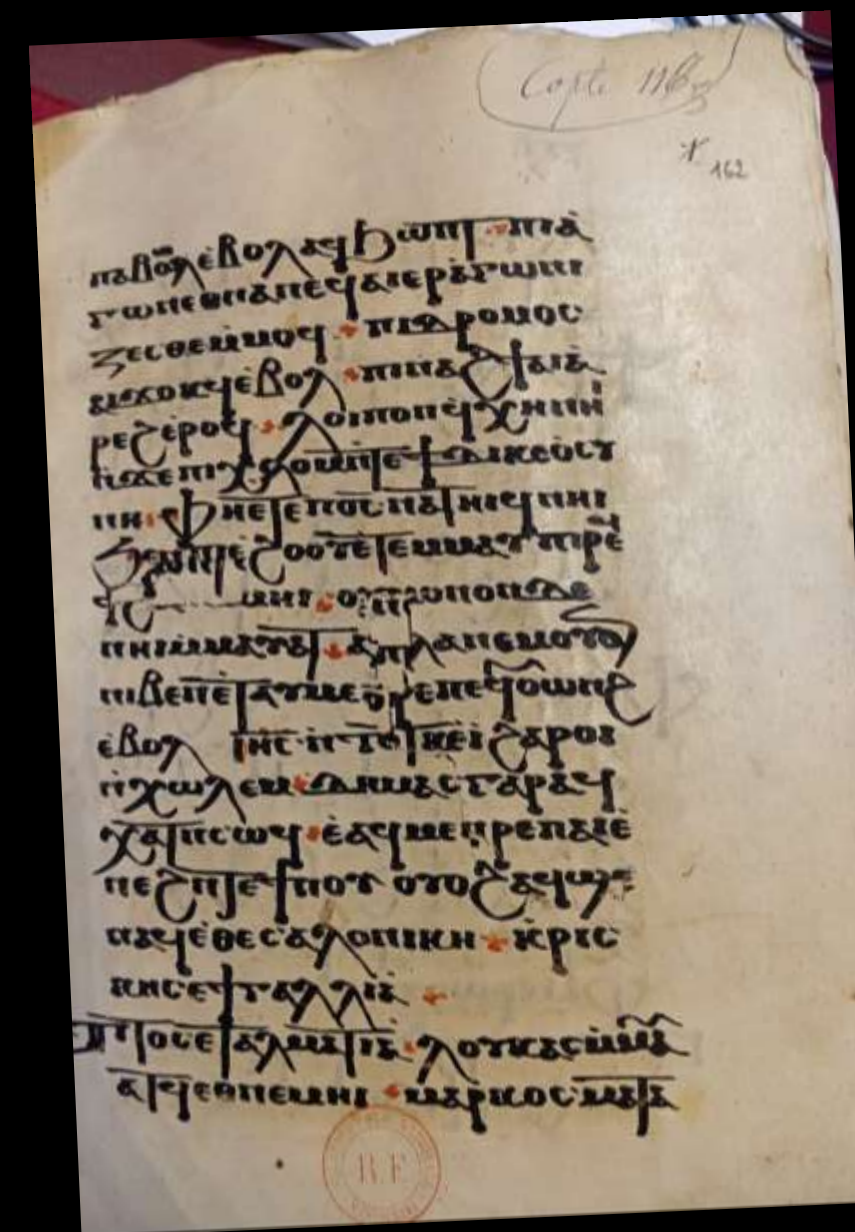 ⲡⲁⲃⲱⲗ ⲉⲃⲟⲗ ⲁϥϧⲱⲛⲧ · ⲡⲓⲁ
ⲅⲱⲛ ⲉⲑⲛⲁⲛⲉϥ ⲁⲓⲉⲣⲁⲅⲱⲛⲓ
ⲍⲉⲥⲑⲉ ⲙ̀ⲙⲟϥ · ⲡⲓⲇⲣⲟⲙⲟⲥ
ⲁⲓϫⲟⲕϥ ⲉ̀ⲃⲟⲗ · ⲡⲓⲛⲁϩϯ ⲁⲓⲁ̀
ⲣⲉϩ ⲉ̀ⲣⲟϥ · ⲗⲟⲓⲡⲟⲛ ϥ̀ⲭⲏ ⲛⲏⲓ
ⲛ̀ϫⲉ ⲡⲓⲭⲗⲟⲙ ⲛ̀ⲧⲉ ϯⲇⲓⲕⲉⲟⲥⲩ
ⲛⲏ · ⲫⲏ ⲉⲧⲉ ⲡⲟ̅ⲥ̅ ⲛⲁⲧⲏⲓϥ ⲛⲏⲓ
ϧⲉⲛ ⲡⲓⲉ̀ϩⲟⲟⲩ ⲉ̀ⲧⲉⲙⲙⲁⲩ ⲡⲓⲣⲉ
ⲙⲏⲓ · ⲟⲩ ⲙⲟⲛⲟⲛ ⲇⲉ
ⲛⲏⲓ ⲙ̀ⲙⲁⲩⲁⲧ · ⲁⲗⲗⲁ ⲛⲉⲙ ⲟⲩⲟⲛ
ⲛⲓⲃⲉⲛ ⲉ̀ⲧⲁⲩⲙⲉⲛⲣⲉ ⲡⲉϥⲟⲩⲱⲛϩ
ⲉ̀ⲃⲟⲗ ⲓⲏⲥ ⲛ̀ⲧⲟⲧⲕ ⲉ̀ⲓ ϩⲁⲣⲟⲓ
ⲛ̀ⲭⲱⲗⲉⲙ · ⲇⲏⲙⲁⲥ ⲅⲁⲣ ⲁϥ
ⲭⲁⲧ ⲛⲥⲱϥ · ⲉ̀ⲁϥⲙⲉⲛⲣⲉ ⲡⲁⲓⲉ̀
ⲛⲉϩ ⲛⲧⲉ ϯⲛⲟⲩ ⲟⲩⲟϩ ⲁϥϣⲉ
ⲛⲁϥ ⲉ̀ⲑⲉⲥⲁⲗⲟⲛⲓⲕⲏ · ⲕ̀ⲣⲓⲥ
ⲕⲏⲥ ⲉϯⲅⲁⲗⲗⲓⲁ̀ ·
ⲧⲓⲧⲟⲥ ⲉⲧⲁⲗⲙⲁⲧⲓⲁ · ⲗⲟⲩⲕⲁⲥ ⲙ̀ⲙⲁⲩ
ⲁⲧϥ ⲉⲑⲛⲉⲙⲏⲓ · ⲙⲁⲣⲕⲟⲥ ⲙⲁⲧⲁ
Copte
162
B F